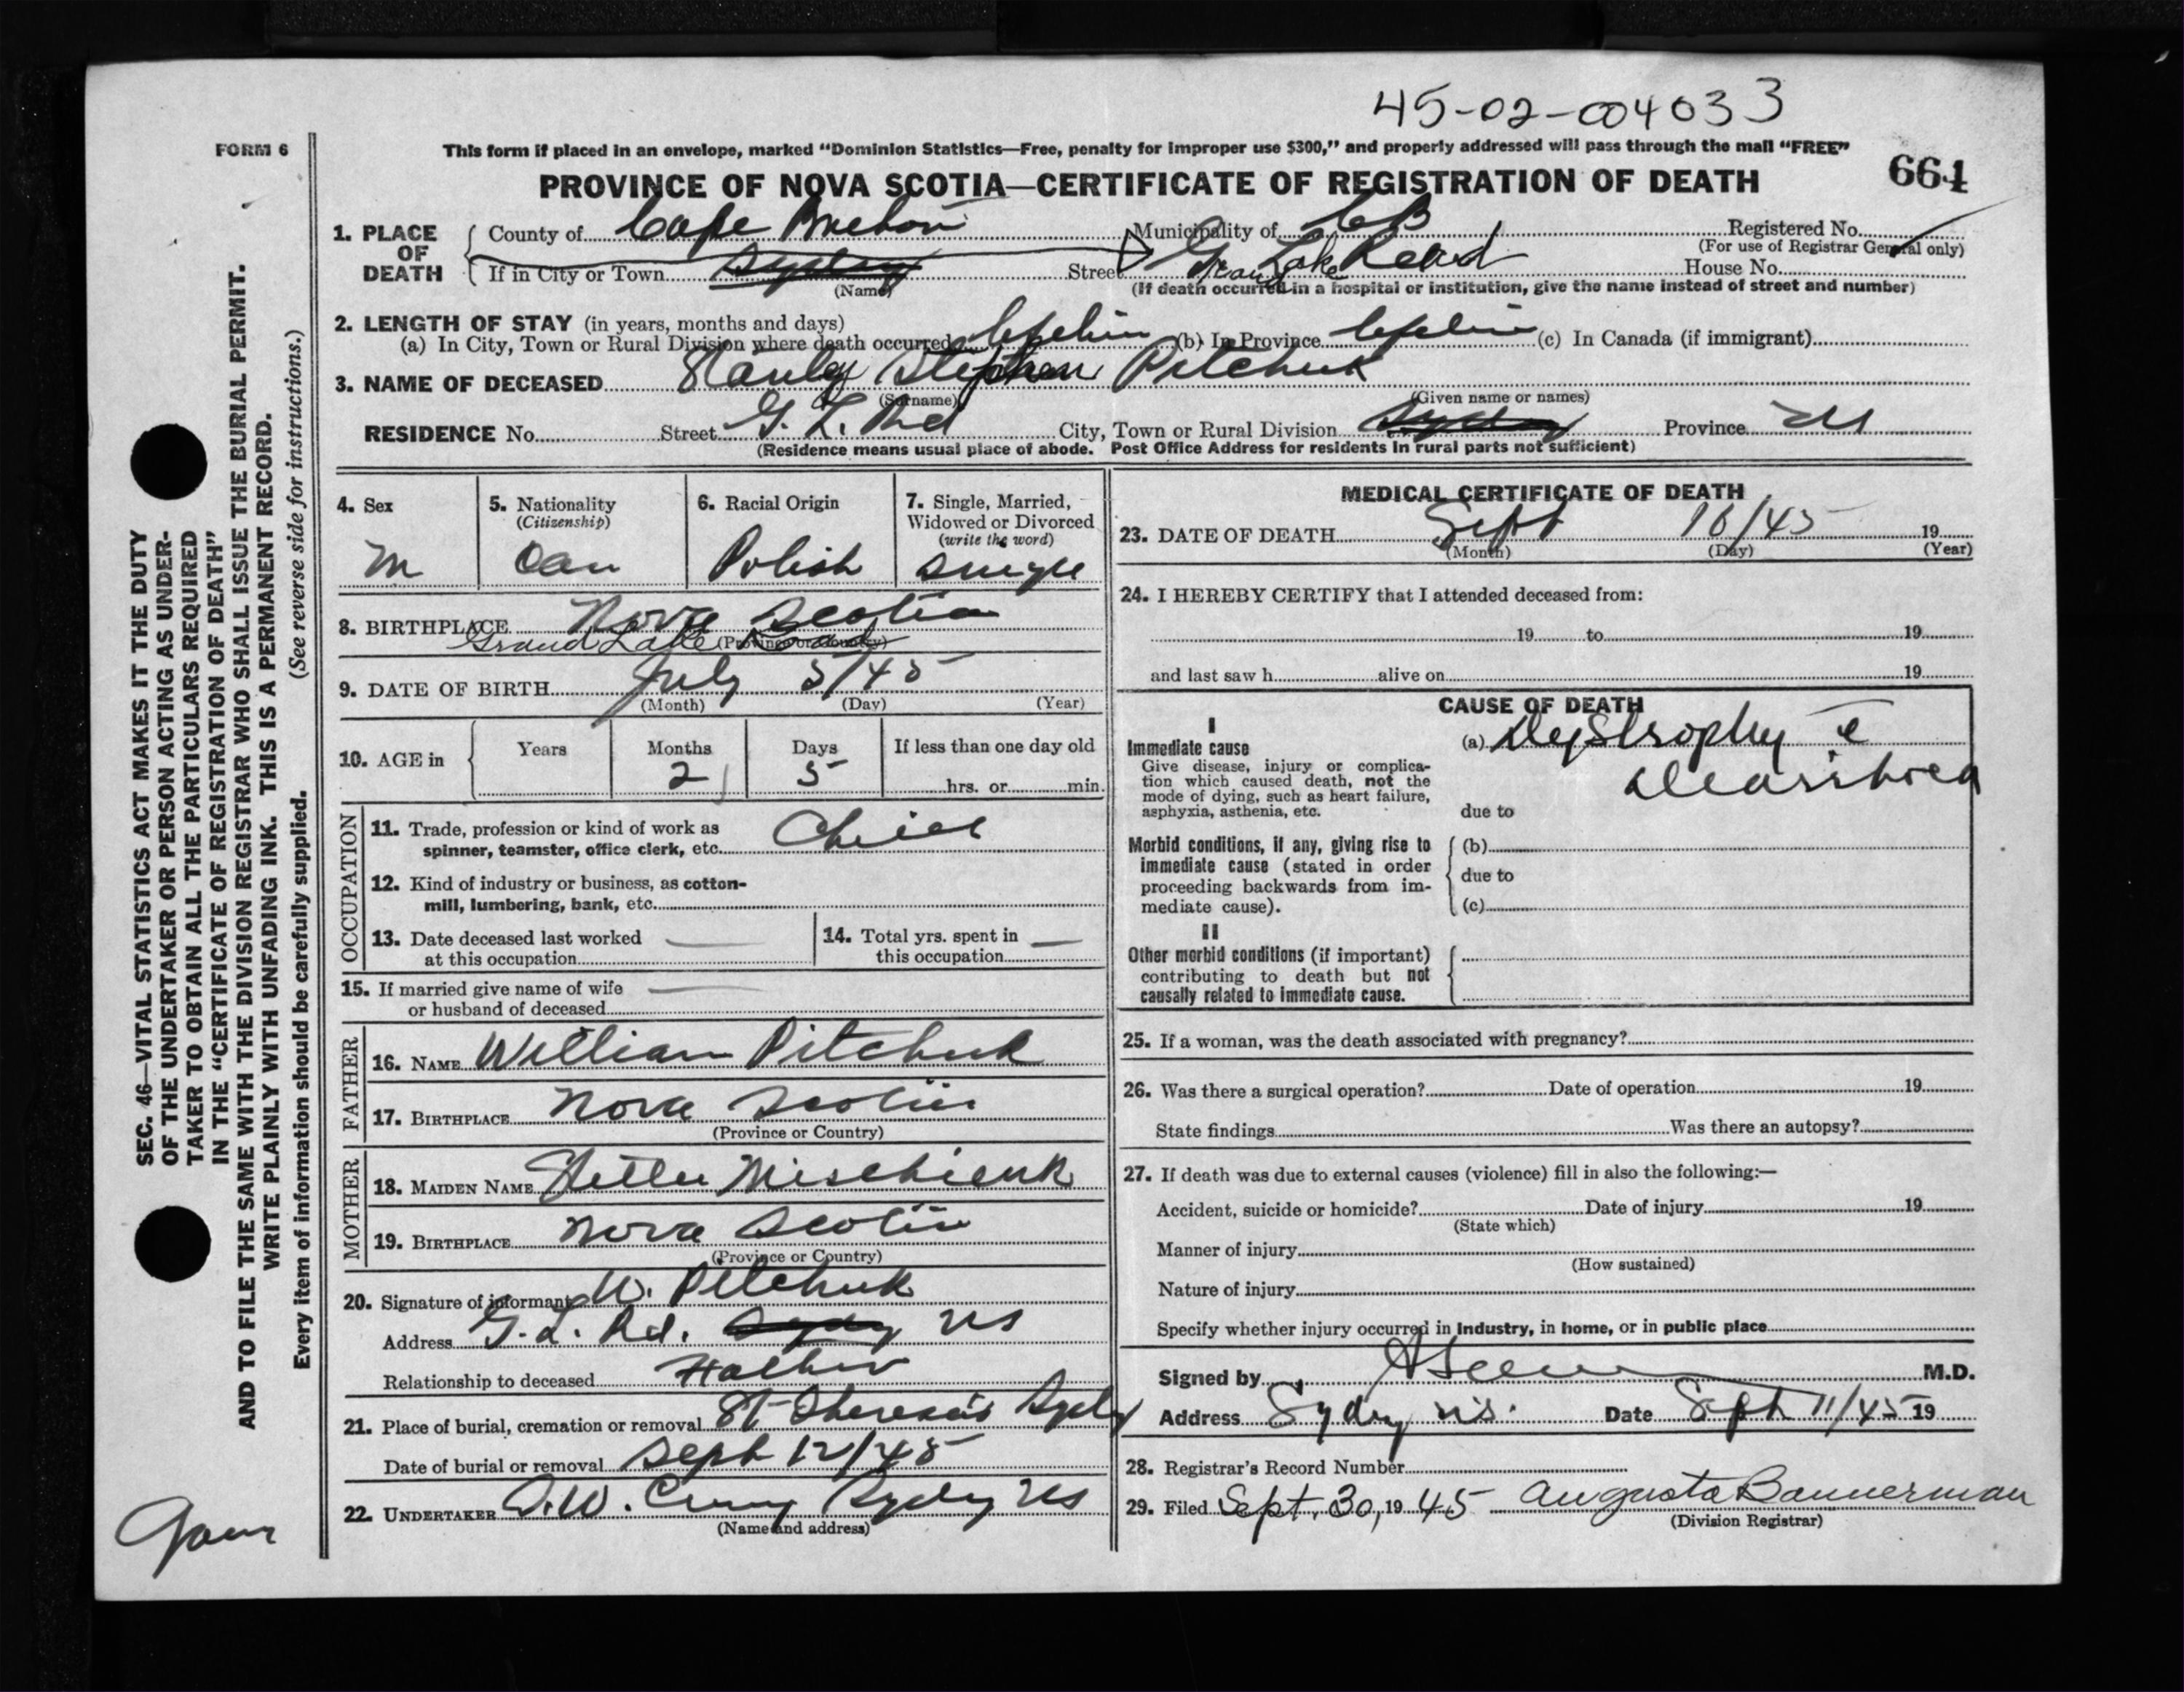 45-02-004033
FORM 6
This form if placed in an envelope, marked "Dominion Statistics—Free, penalty for improper use $300," and properly addressed will pass through the mail "FREE"
PROVINCE OF NOVA SCOTIA—CERTIFICATE OF REGISTRATION OF DEATH
664
1. PLACE OF DEATH
County of Cape Breton Municipality of CB Registered No.
(For use of Registrar General only)
If in City or Town Sydney Street Grand Lake Road House No.
(Name) (If death occurred in a hospital or institution, give the name instead of street and number)
2. LENGTH OF STAY (in years, months and days)
(a) In City, Town or Rural Division where death occurred Lifetime (b) In Province Lifetime (c) In Canada (if immigrant)
3. NAME OF DECEASED Stanley Stephen Pitchuk
(Surname) (Given name or names)
RESIDENCE No. Street G. L. Rd City, Town or Rural Division Sydney Province NS
(Residence means usual place of abode. Post Office Address for residents in rural parts not sufficient)
4. Sex
M
5. Nationality
(Citizenship)
Can
6. Racial Origin
Polish
7. Single, Married,
Widowed or Divorced
(write the word)
Single
8. BIRTHPLACE Nova Scotia
Grand Lake Road (Province or Country)
9. DATE OF BIRTH July 5/45
(Month) (Day) (Year)
10. AGE in Years Months Days If less than one day old
2 5 hrs. or min.
OCCUPATION
11. Trade, profession or kind of work as
spinner, teamster, office clerk, etc. Child
12. Kind of industry or business, as cotton-
mill, lumbering, bank, etc.
13. Date deceased last worked
at this occupation
14. Total yrs. spent in
this occupation
15. If married give name of wife
or husband of deceased
FATHER
16. NAME William Pitchuk
17. BIRTHPLACE Nova Scotia
(Province or Country)
MOTHER
18. MAIDEN NAME Stella
19. BIRTHPLACE Nova Scotia
(Province or Country)
20. Signature of informant W. Pitchuk
Address G. L. Rd. Sydney NS
Relationship to deceased Father
21. Place of burial, cremation or removal St Theresa's Sydney
Date of burial or removal Sept 12/45
22. UNDERTAKER Sydney NS
(Name and address)
MEDICAL CERTIFICATE OF DEATH
23. DATE OF DEATH Sept 10/45 19
(Month) (Day) (Year)
24. I HEREBY CERTIFY that I attended deceased from:
19 to 19
and last saw h alive on 19
CAUSE OF DEATH
I
Immediate cause
Give disease, injury or complica-
tion which caused death, not the
mode of dying, such as heart failure,
asphyxia, asthenia, etc.
(a) Dystrophy c̄
diarrhoea
due to
Morbid conditions, if any, giving rise to
immediate cause (stated in order
proceeding backwards from im-
mediate cause).
(b)
due to
(c)
II
Other morbid conditions (if important)
contributing to death but not
causally related to immediate cause.
25. If a woman, was the death associated with pregnancy?
26. Was there a surgical operation? Date of operation 19
State findings Was there an autopsy?
27. If death was due to external causes (violence) fill in also the following:—
Accident, suicide or homicide? Date of injury 19
(State which)
Manner of injury
(How sustained)
Nature of injury
Specify whether injury occurred in industry, in home, or in public place
Signed by M.D.
Address Sydney N.S. Date Sept 11/45 19
28. Registrar's Record Number
29. Filed Sept. 30, 19 45 Augusta Bannerman
(Division Registrar)
SEC. 46—VITAL STATISTICS ACT MAKES IT THE DUTY
OF THE UNDERTAKER OR PERSON ACTING AS UNDER-
TAKER TO OBTAIN ALL THE PARTICULARS REQUIRED
IN THE "CERTIFICATE OF REGISTRATION OF DEATH"
AND TO FILE THE SAME WITH THE DIVISION REGISTRAR WHO SHALL ISSUE THE BURIAL PERMIT.
WRITE PLAINLY WITH UNFADING INK. THIS IS A PERMANENT RECORD.
Every item of information should be carefully supplied. (See reverse side for instructions.)